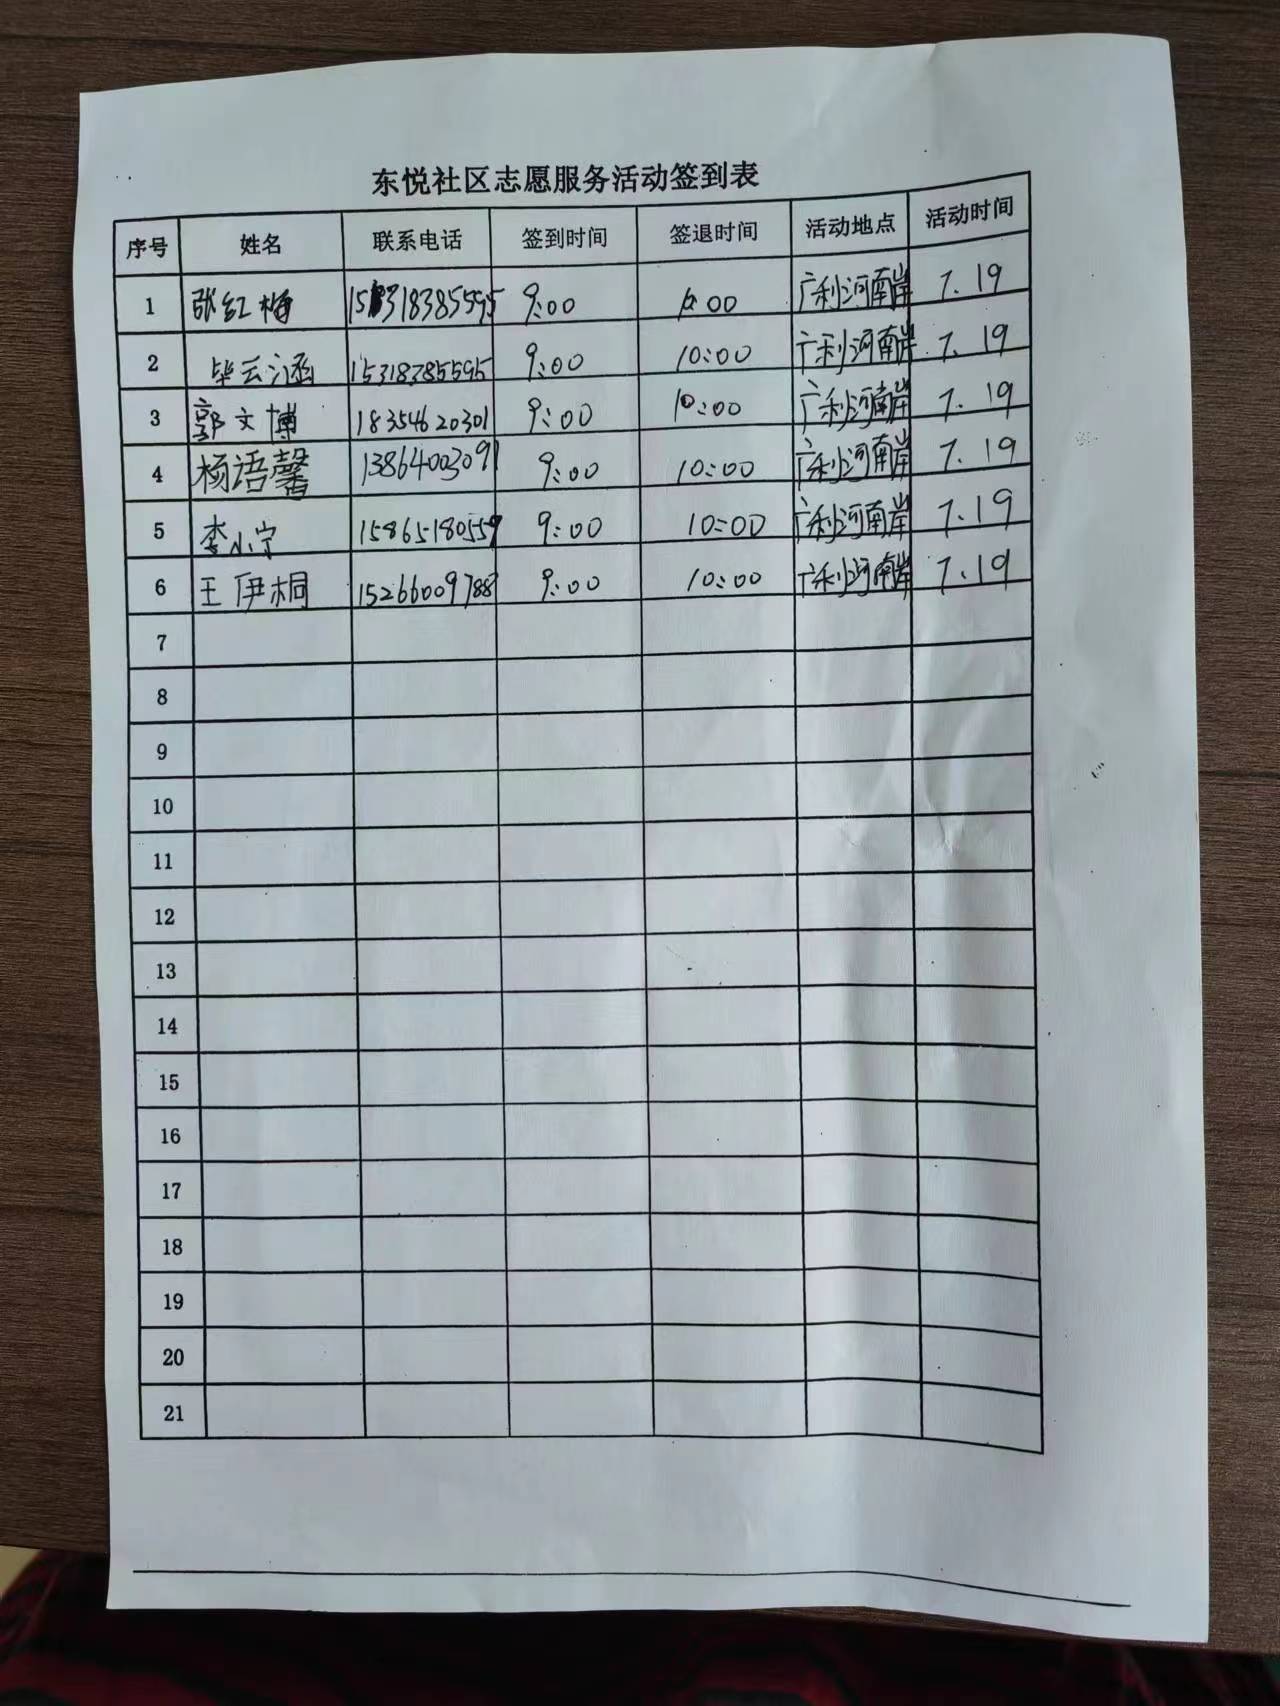 东悦社区志愿服务活动签到表
序号 姓名 联系电话 签到时间 签退时间 活动地点 活动时间
1 张红梅 15318385595 9:00 10:00 广利河南岸 7.19
2 毕云涵 15318385595 9:00 10:00 广利河南岸 7.19
3 郭文博 18354620301 9:00 10:00 广利河南岸 7.19
4 杨语馨 13864003091 9:00 10:00 广利河南岸 7.19
5 李小宁 15865180559 9:00 10:00 广利河南岸 7.19
6 王伊桐 15266009788 9:00 10:00 广利河南岸 7.19
7
8
9
10
11
12
13
14
15
16
17
18
19
20
21